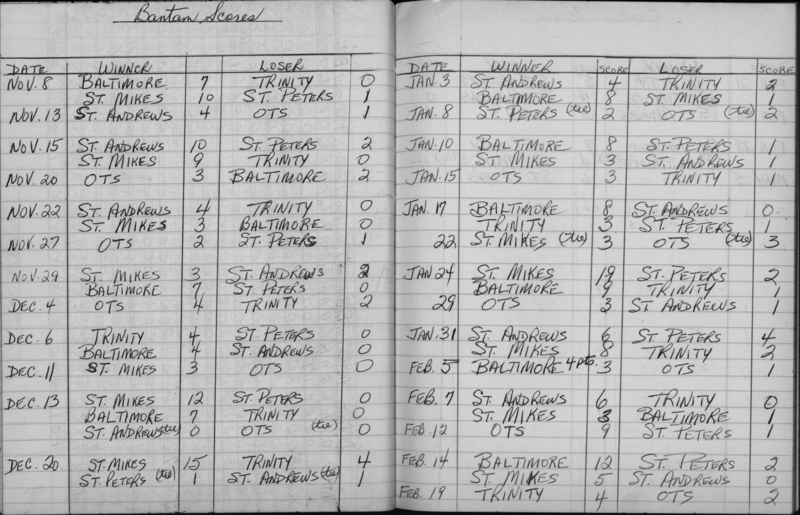 Bantam Scores
DATE WINNER LOSER
NOV. 8 BALTIMORE 7 TRINITY 0
ST. MIKES 10 ST. PETERS 1
NOV. 13 ST. ANDREWS 4 OTS 1
NOV. 15 ST. ANDREWS 10 ST. PETERS 2
ST. MIKES 9 TRINITY 0
NOV. 20 OTS 3 BALTIMORE 2
NOV. 22 ST. ANDREWS 4 TRINITY 0
ST. MIKES 3 BALTIMORE 0
NOV. 27 OTS 2 ST. PETERS 1
NOV. 29 ST. MIKES 3 ST. ANDREWS 2
BALTIMORE 7 ST. PETERS 0
DEC. 4 OTS 4 TRINITY 2
DEC. 6 TRINITY 4 ST. PETERS 0
BALTIMORE 4 ST. ANDREWS 0
DEC. 11 ST. MIKES 3 OTS 0
DEC. 13 ST. MIKES 12 ST. PETERS 0
BALTIMORE 7 TRINITY 0
ST. ANDREWS (tie) 0 OTS (tie) 0
DEC. 20 ST. MIKES 15 TRINITY 4
ST. PETERS (tie) 1 ST. ANDREWS (tie) 1
DATE WINNER SCORE LOSER SCORE
JAN. 3 ST. ANDREWS 4 TRINITY 2
BALTIMORE 8 ST. MIKES 1
JAN. 8 ST. PETERS (tie) 2 OTS (tie) 2
JAN. 10 BALTIMORE 8 ST. PETERS 1
ST. MIKES 3 ST. ANDREWS 1
JAN. 15 OTS 3 TRINITY 1
JAN. 17 BALTIMORE 8 ST. ANDREWS 0
TRINITY 3 ST. PETERS 1
22 ST. MIKES (tie) 3 OTS (tie) 3
JAN 24 ST. MIKES 19 ST. PETERS 2
BALTIMORE 9 TRINITY 1
29 OTS 3 ST. ANDREWS 1
JAN. 31 ST. ANDREWS 6 ST. PETERS 4
ST. MIKES 8 TRINITY 2
FEB. 5 BALTIMORE 4 pts. 3 OTS 1
FEB. 7 ST. ANDREWS 6 TRINITY 0
ST. MIKES 3 BALTIMORE 1
FEB. 12 OTS 9 ST. PETERS 1
FEB. 14 BALTIMORE 12 ST. PETERS 2
ST. MIKES 5 ST. ANDREWS 0
FEB. 19 TRINITY 4 OTS 2